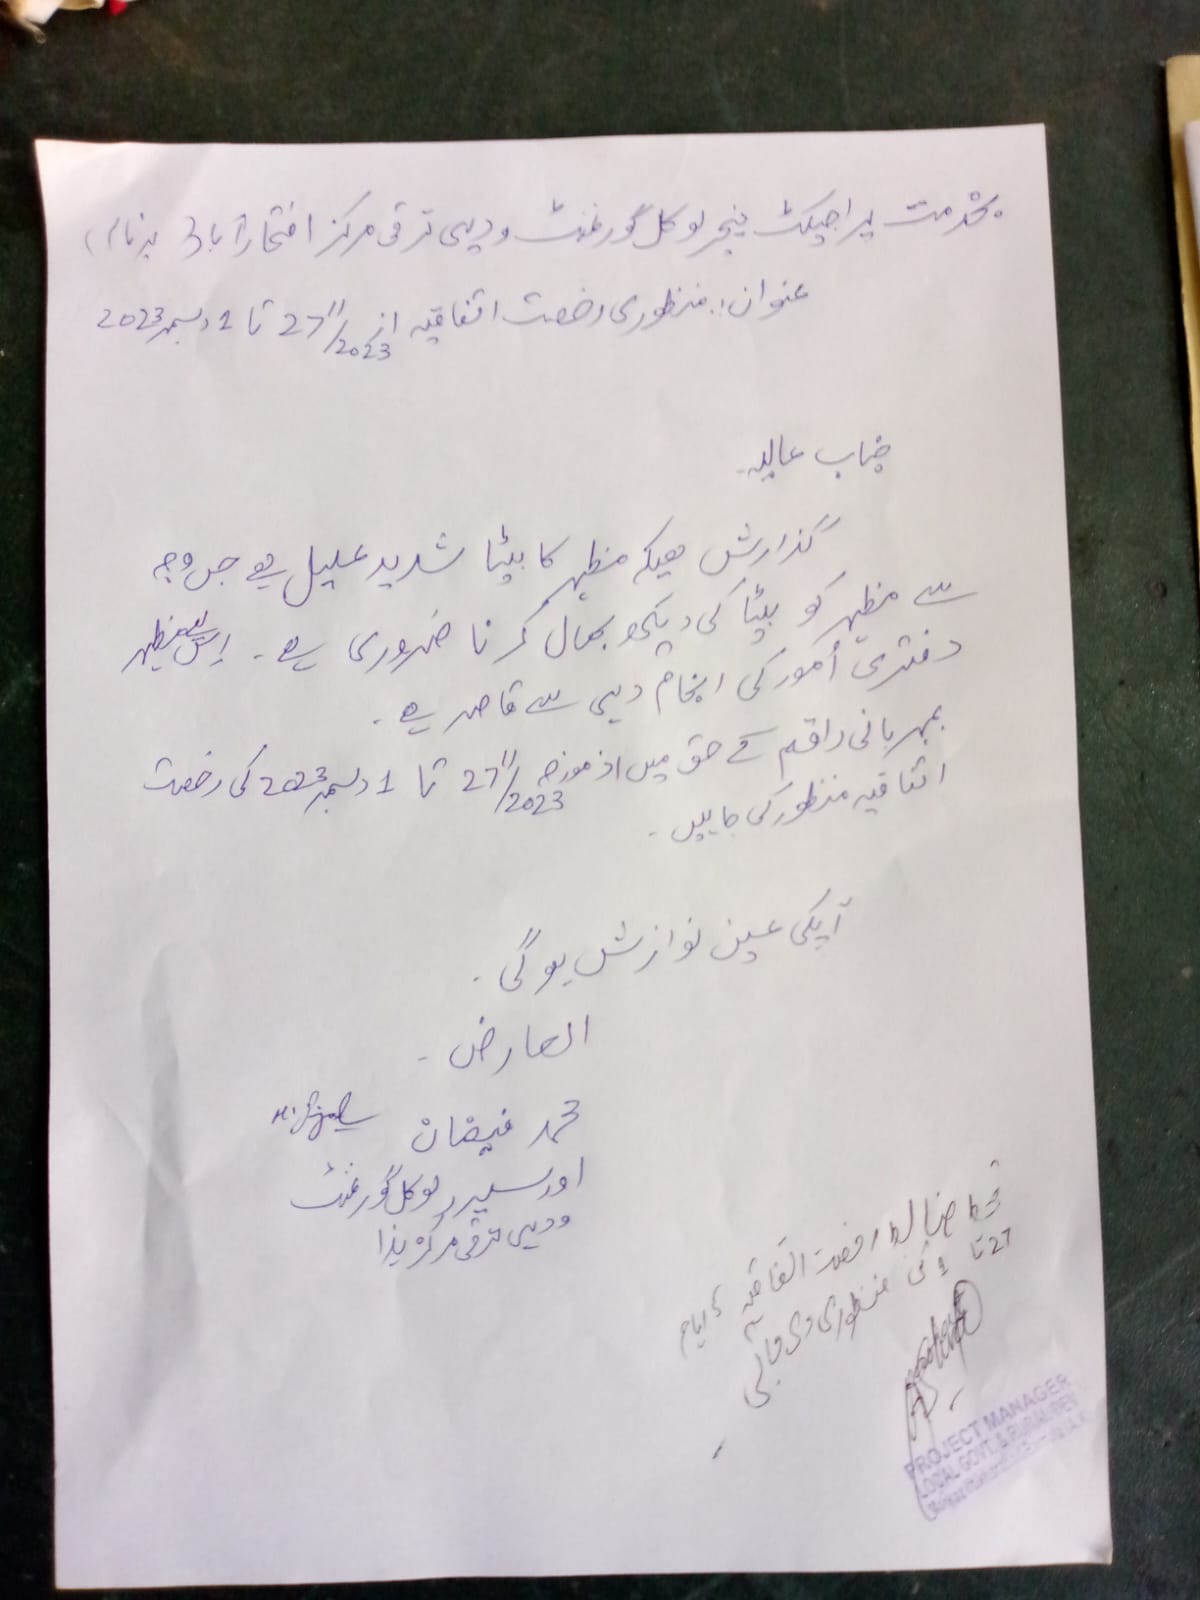 بخدمت پراجیکٹ منیجر لوکل گورنمنٹ و دیہی ترقی مرکز افتخار آباد برنالہ
عنوان:۔ منظوری رخصت اتفاقیہ از 27/11/2023 تا 1 دسمبر 2023
جناب عالیہ۔
گذارش ھیکہ مظہر کا بیٹا شدید علیل ہے جس وجہ
سے مظہر کو بیٹا کی دیکھ بھال کرنا ضروری ہے۔ اس لیے مظہر
دفتری اُمور کی انجام دہی سے قاصر ہے۔
بمہربانی راقم کے حق میں از مورخہ 27/11/2023 تا 1 دسمبر 2023 کی رخصت
اتفاقیہ منظور کی جاہیں۔
آپکی عین نوازش ہو گی۔
العارض۔
محمد فیضان
اورسیر لوکل گورنمنٹ
و دیہی ترقی مرکز ہذا
رخصت اتفاقیہ 5 ایام
27 تا 1 کی منظوری دی جاتی
PROJECT MANAGER
LOCAL GOVT. & RURAL DEV